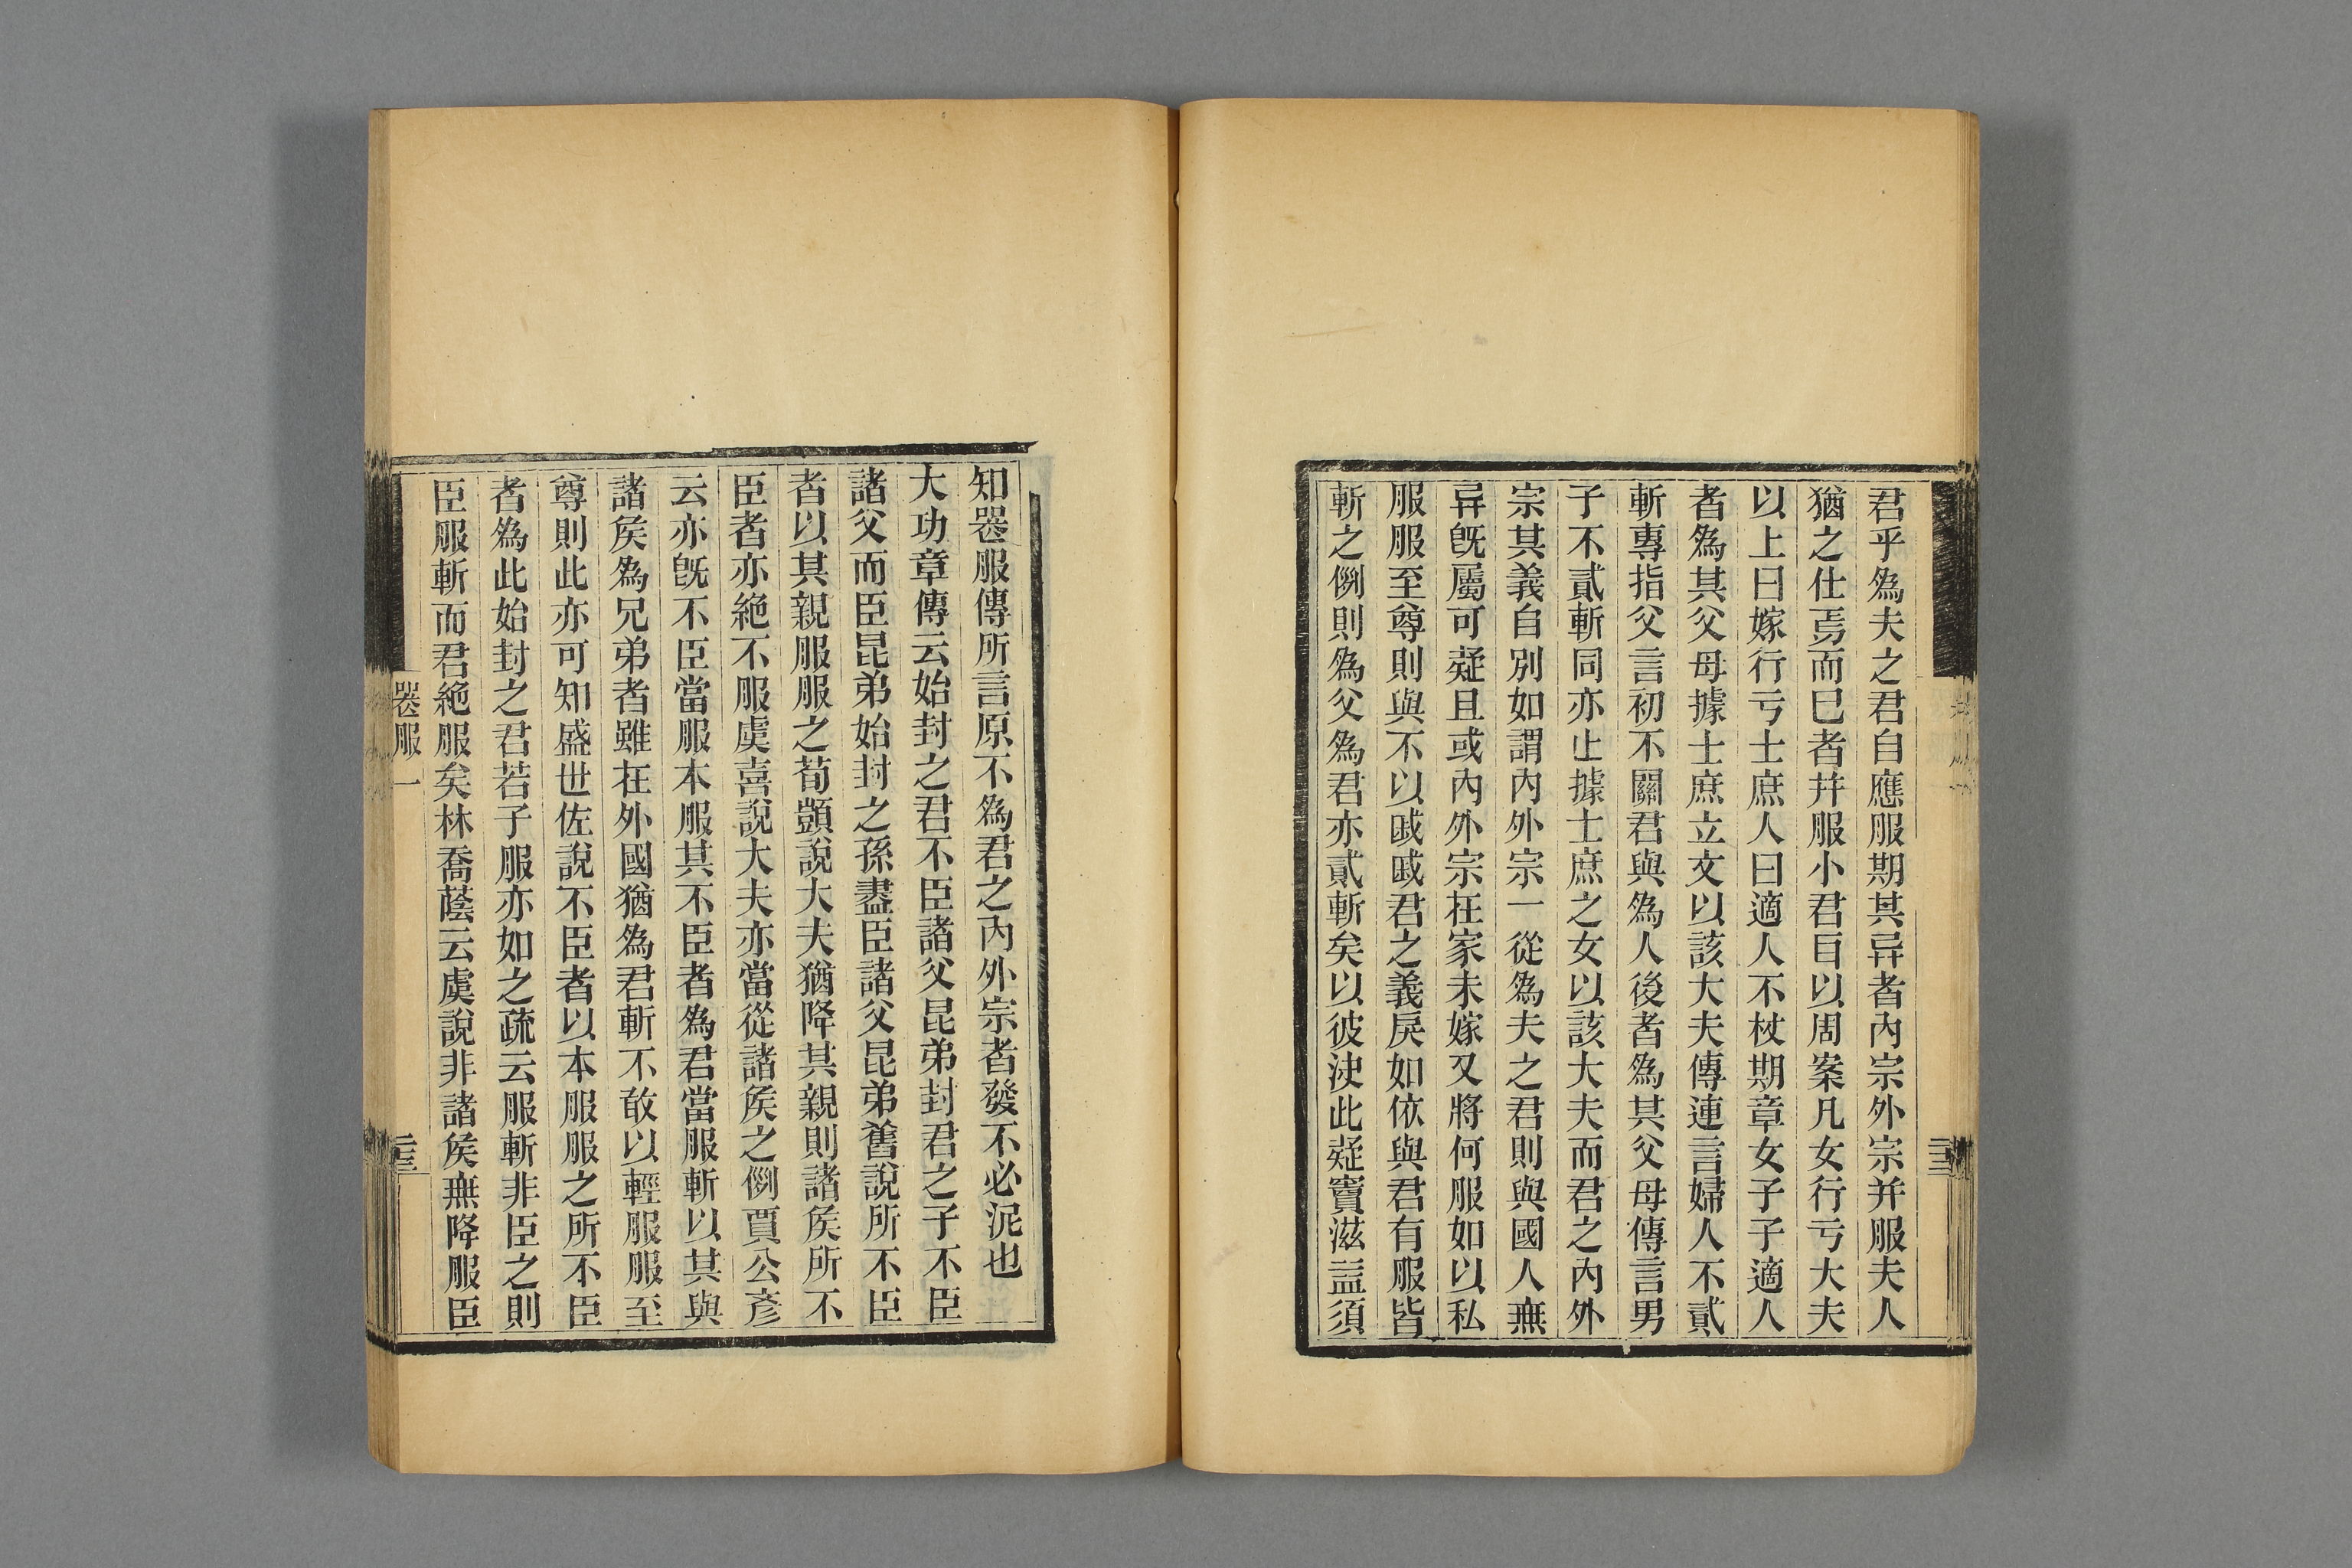 君乎為夫之君自應服期其异者內宗外宗并服夫人
猶之仕焉而巳者并服小君㠯以周案凡女行亏大夫
以上曰嫁行亏士庶人曰適人不杖期章女子子適人
者為其父母據士庶立文以該大夫傳連言婦人不貳
斬專指父言初不關君與為人後者為其父母傳言男
子不貳斬同亦止據士庶之女以該大夫而君之內外
宗其義自別如謂內外宗一從為夫之君則與國人無
异旣屬可疑且或內外宗在家未嫁又將何服如以私
服服至尊則與不以戚戚君之義戾如依與君有服皆
斬之例則為父為君亦貳斬矣以彼決此疑竇滋益須
知喪服傳所言原不為君之內外宗者發不必泥也
大功章傳云始封之君不臣諸父昆弟封君之子不臣
諸父而臣昆弟始封之孫盡臣諸父昆弟舊說所不臣
者以其親服服之荀顗說大夫猶降其親則諸矦所不
臣者亦絕不服虞喜說大夫亦當從諸矦之例賈公彥
云亦旣不臣當服本服其不臣者為君當服斬以其與
諸矦為兄弟者雖在外國猶為君斬不敢以輕服服至
尊則此亦可知盛世佐說不臣者以本服服之所不臣
者為此始封之君若子服亦如之疏云服斬非臣之則
臣服斬而君絕服矣林喬蔭云虞說非諸矦無降服臣
喪服一
二三